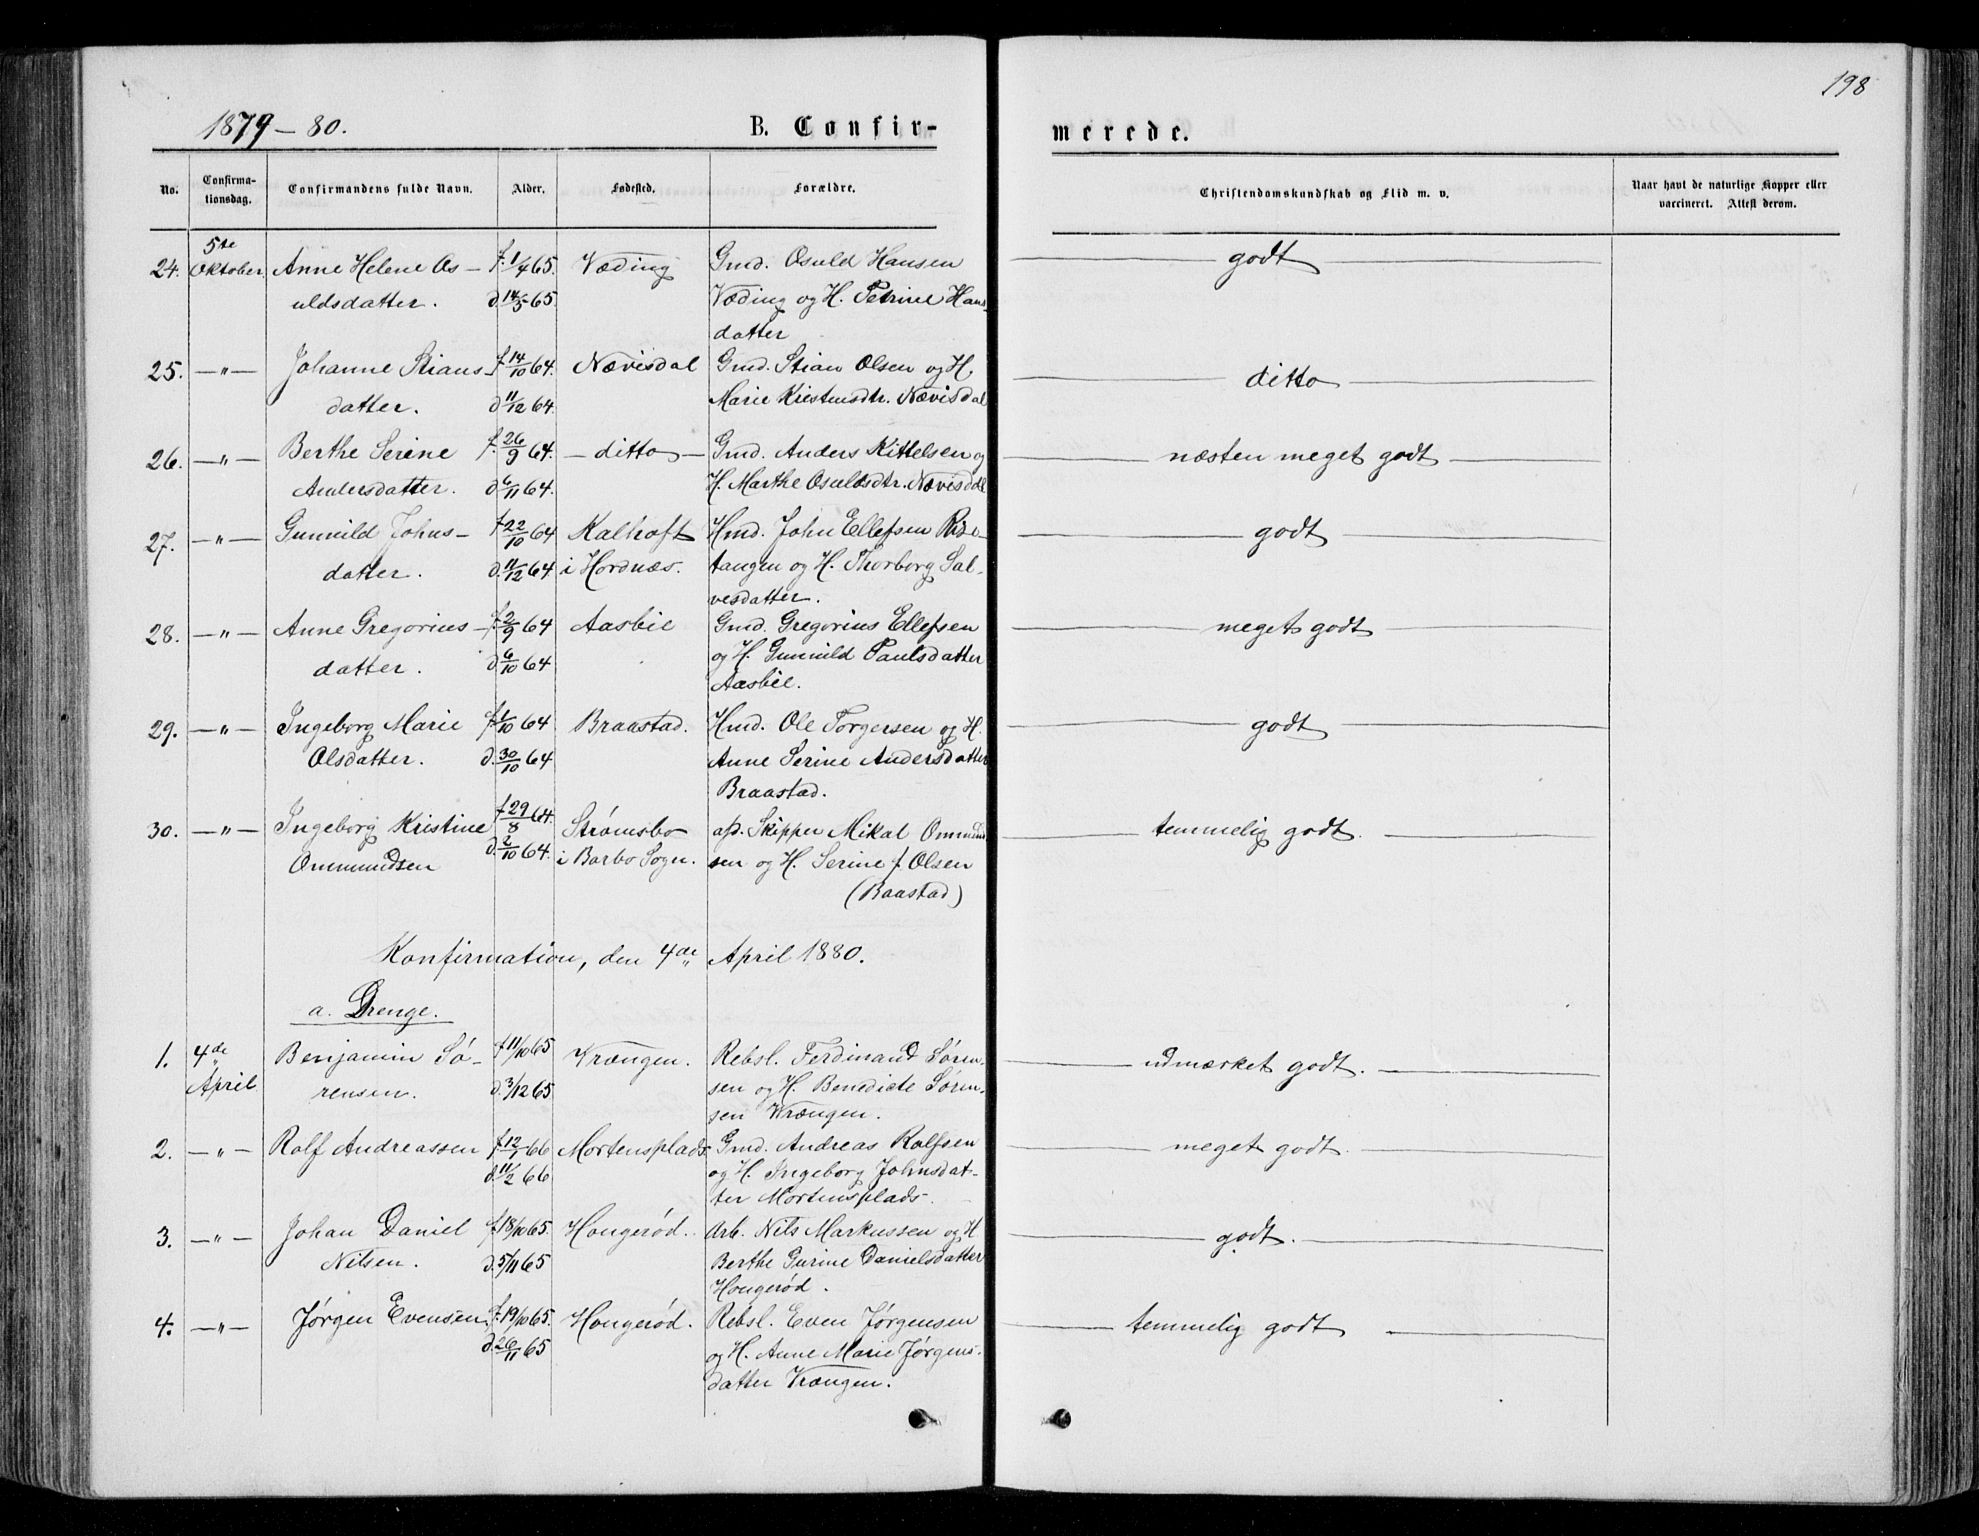 198
1879-80.
B. Confir-
merede.
No.
Confirma-
tionsdag.
Confirmandens fulde Navn.
Alder.
Fødested.
Forældre.
Christendomskundskab og Flid m. v.
Naar havt de naturlige Kopper eller
vaccineret. Attest derom.
5te
24. Oktober Anne Helene Os- f. 1/4 65. Væding Gmd. Osuld Hansen godt
uldsdatter. d. 14/5 65 Væding og H. Petrine Hans-
datter
25. -"- Johanne Stians- f. 14/10 64. Nævisdal Gmd. Stian Olsen og H. ditto
datter. d. 11/12 64. Marie Kristensdtr. Nævisdal
26. -"- Berthe Serine f. 26/9 64. -ditto- Gmd. Anders Kittelsen og næsten meget godt
Andersdatter. d. 6/11 64. H. Marthe Osuldsdtr. Nævisdal
27. -"- Gunuild Johns- f. 22/10 64 Kalhoft Hmd. John Ellefsen Rise- godt
datter. d. 11/12 64 i Hordnæs. tangen og H. Thorborg Sal-
vesdatter.
28. -"- Anne Gregorius- f. 2/9 64 Aasbie Gmd. Gregorius Ellefsen meget godt
datter. d. 6/10 64 og H. Gunuild Paulsdatter
Aasbie.
29. -"- Ingeborg Marie f. 1/10 64 Braastad. Hmd. Ole Torgersen og H. godt
Olsdatter. d. 30/10 64 Anne Serine Andersdatter
Braastad.
30. -"- Ingeborg Kristine f. 29/8 64. Strømsbo afd. Skipper Mikal Ommund temmelig godt.
Ommundsen d. 2/10 64. i Barbo Sogn. sen og H. Serine f. Olsen
(Baastad)
Konfirmation, den 4de April 1880.
a. Drenge.
1. 4de Benjamin Sø- f. 11/10 65 Vrængen. Rebsl. Ferdinand Søren- udmærket godt.
April rensen. d. 3/12 65 sen og H. Benedicte Søren-
sen Vrængen.
2. -"- Rolf Andreassen f. 12/1 66 Mortensplads. Gmd. Andreas Rolfsen meget godt.
d. 11/2 66 og H. Ingeborg Johnsdat-
ter Mortensplads.
3. -"- Johan Daniel f. 18/10 65. Hougerød. Arb. Nils Markussen og H. godt.
Nilsen. d. 5/11 65 Berthe Gurine Danielsdatter
Hougerød.
4. -"- Jørgen Evensen f. 19/10 65. Hougerød. Rebsl. Even Jørgensen temmelig godt
d. 26/11 65 og H. Anne Marie Jørgens-
datter Vrængen.